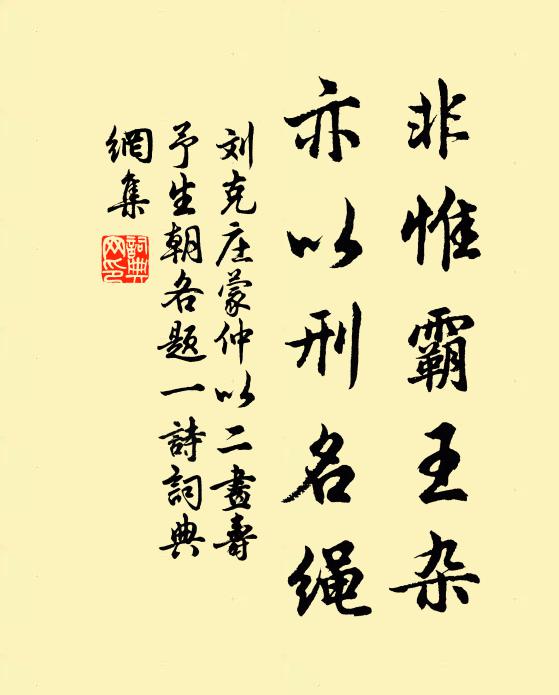 非惟霸王杂
亦以刑名绳
刘克庄蒙仲以二画寿
予生朝各题一詩詞典
網集
詞典網印